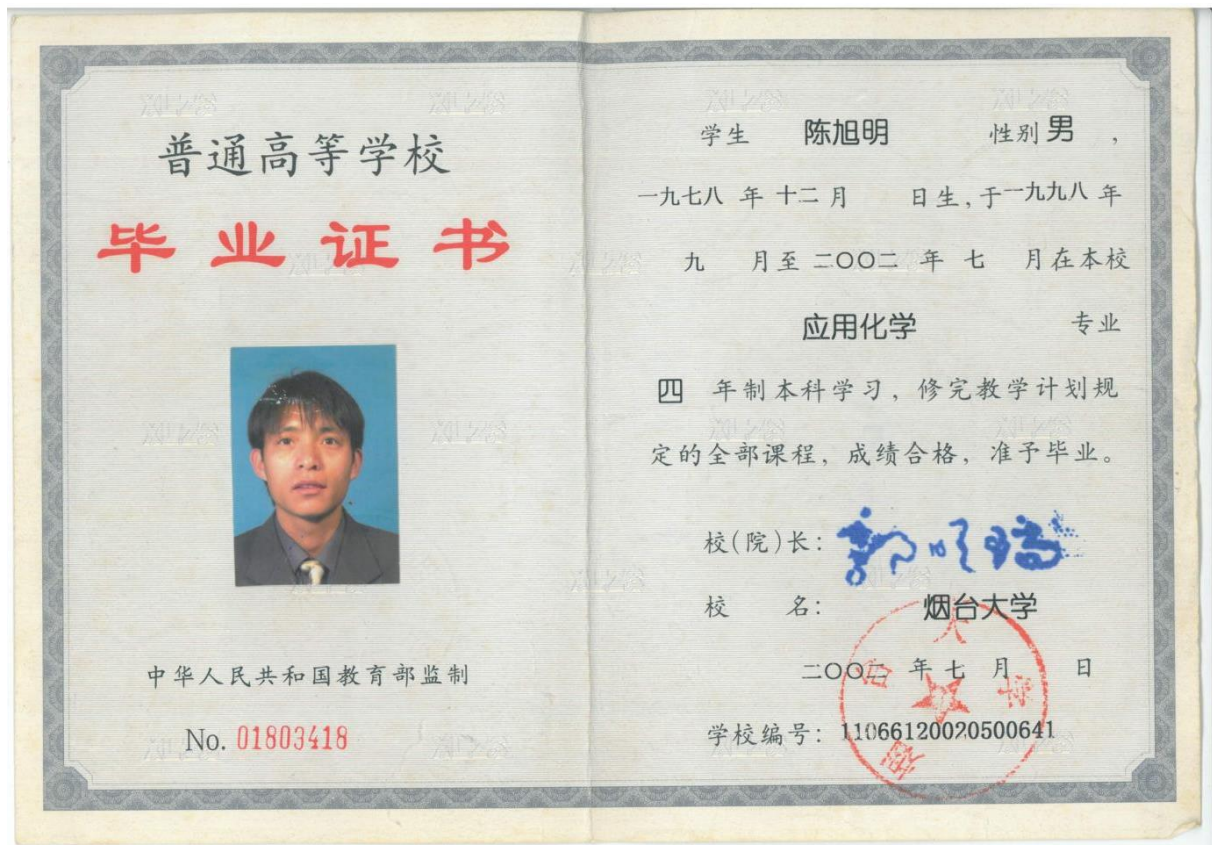 普通高等学校
毕业证书
中华人民共和国教育部监制
No. 01803418
学生 陈旭明 性别 男 ,
一九七八 年 十二 月 日生,于 一九九八 年
九 月至 二〇〇二 年 七 月在本校
应用化学 专业
四 年制本科学习, 修完教学计划规
定的全部课程, 成绩合格, 准予毕业。
校(院)长:
校 名: 烟台大学
二〇〇二 年 七 月 日
学校编号: 11066120020500641
烟台大学